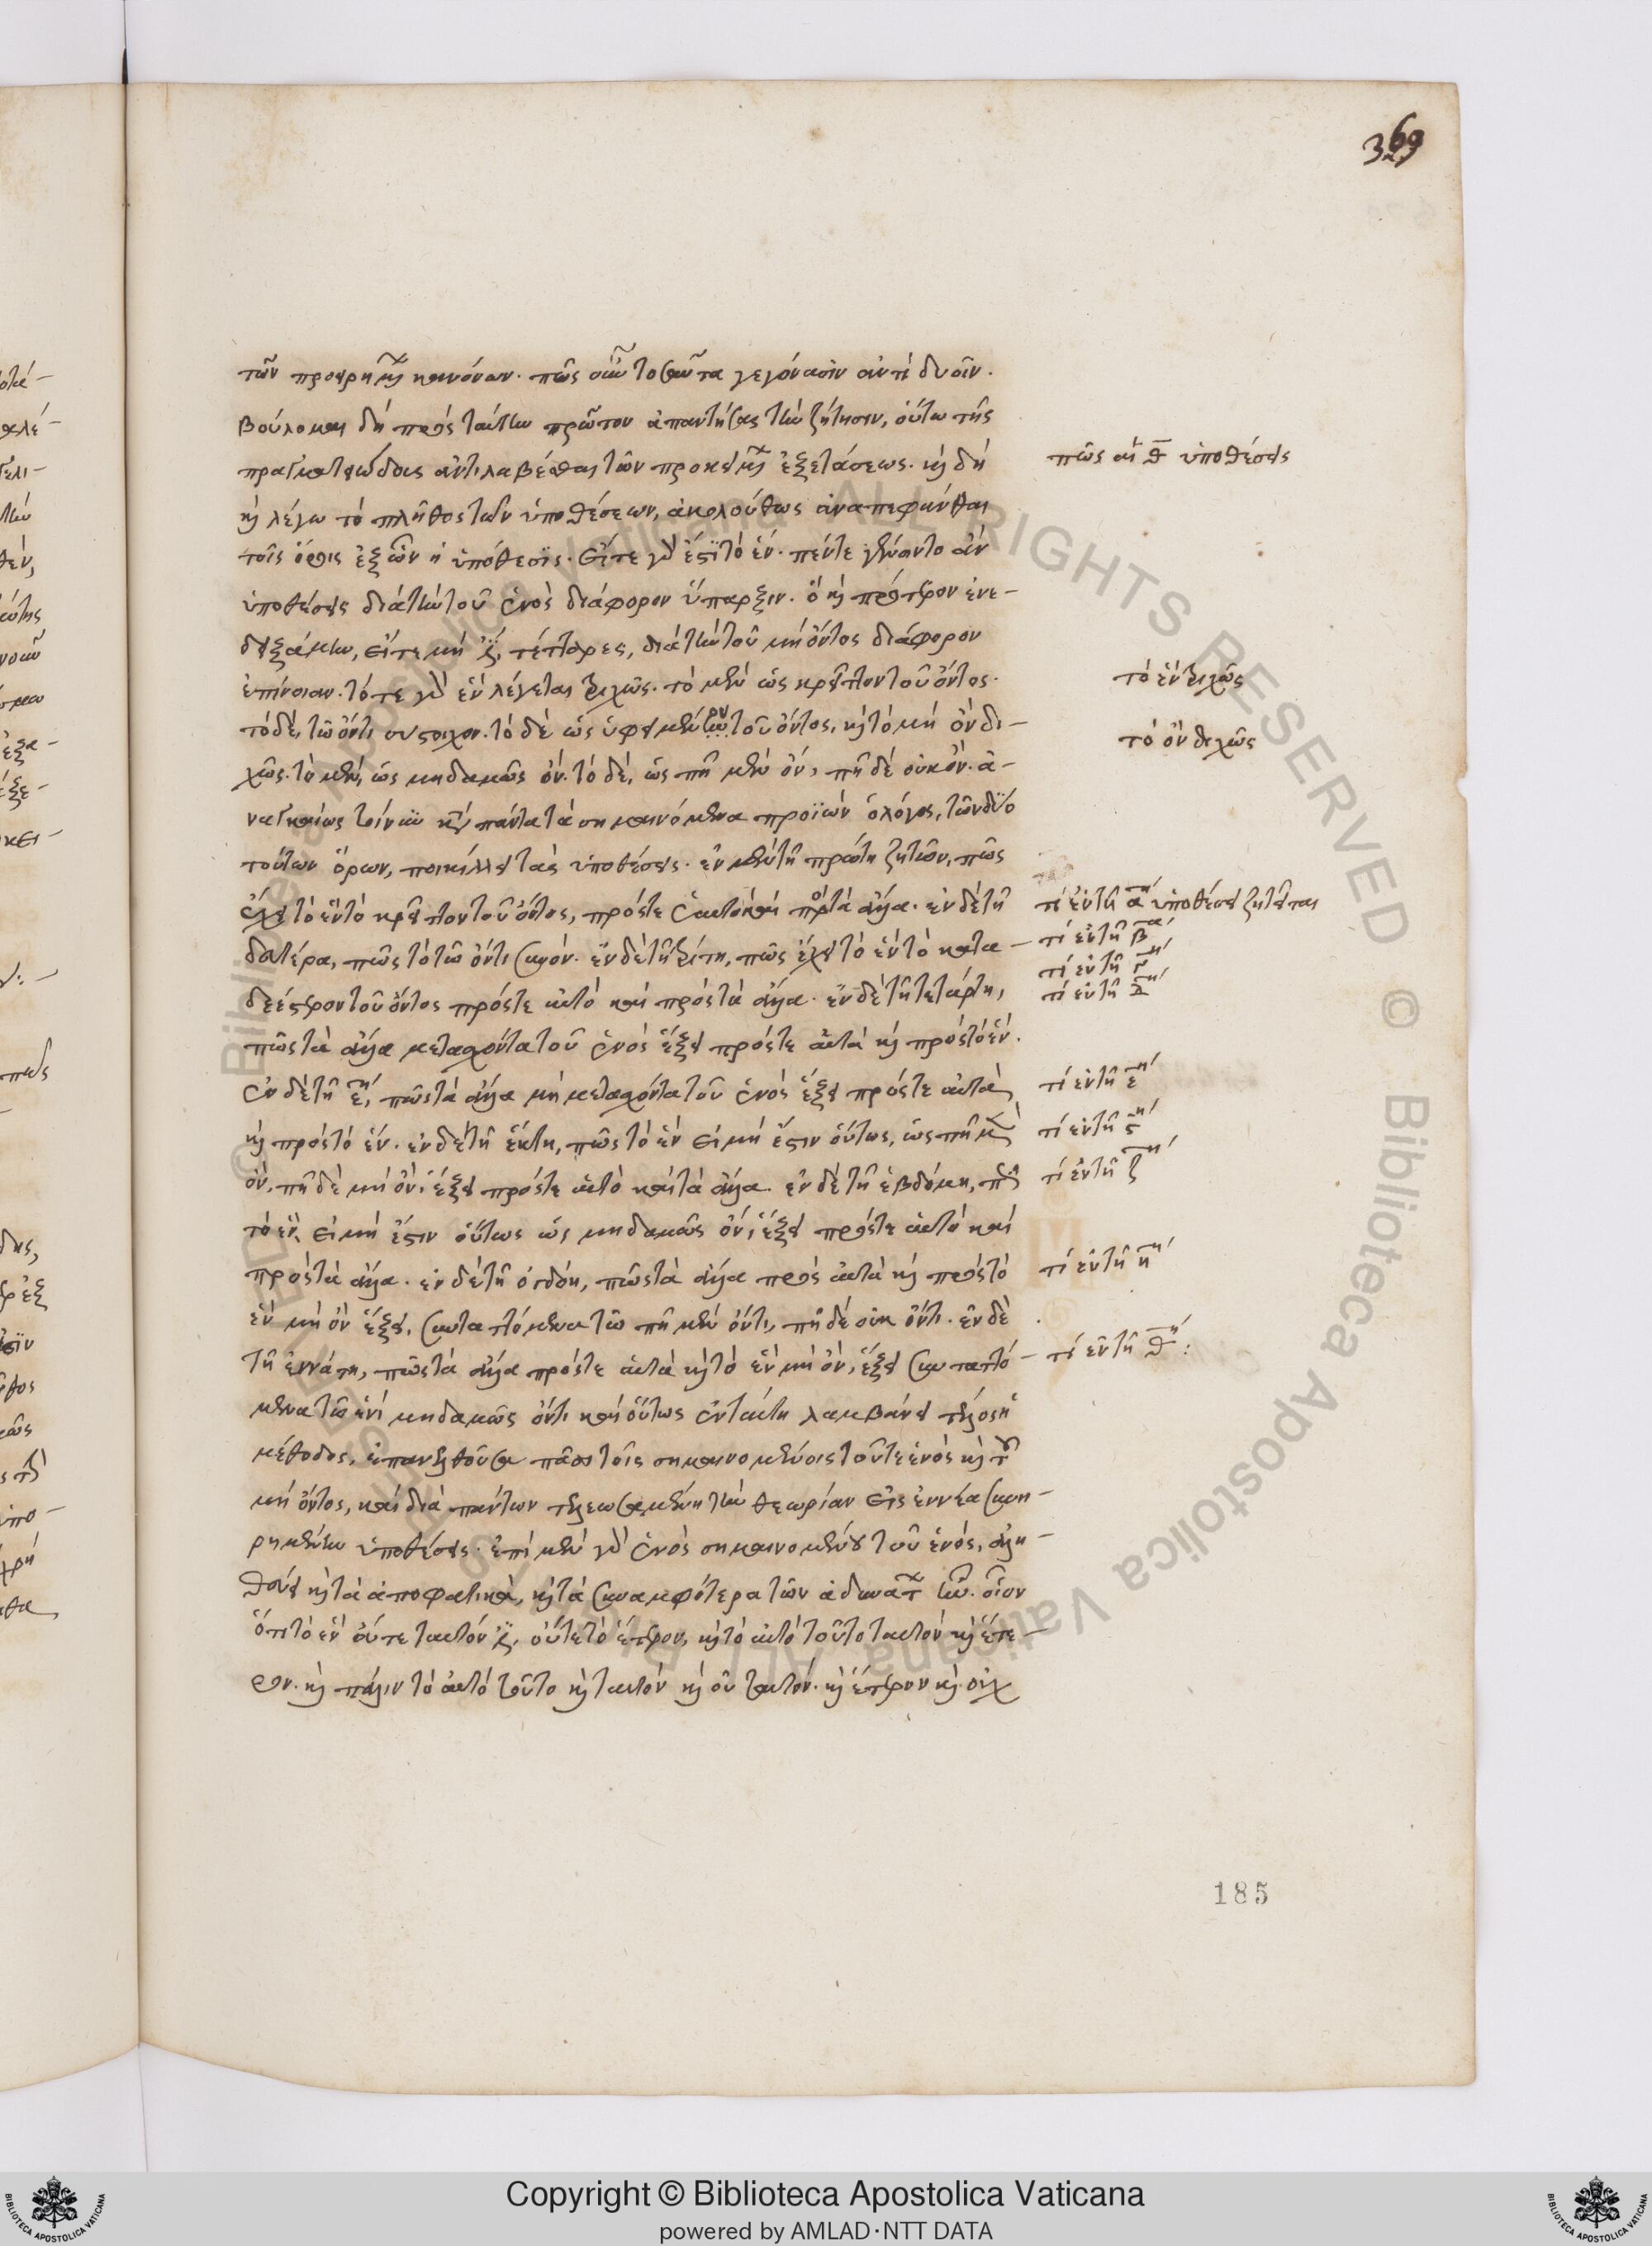 369
τῶν προειρημένων κανόνων. πῶς οὖν τοσαῦτα γεγόνασιν ἀντὶ δυοῖν.
βούλομαι δὴ πρὸς ταύτην πρῶτον ἀπαντήσας τὴν ζήτησιν, οὕτω τῆς
πραγματειώδους ἀντιλαβέσθαι τῶν προκειμένων ἐξετάσεως. καὶ δὴ
πῶς αἱ θ ὑποθέσεις
καὶ λέγω τὸ πλῆθος τῶν ὑποθέσεων, ἀκολούθως ἀναπεφάνθαι
τοῖς ὅροις ἐξ ὧν ἡ ὑπόθεσις. εἴτε γὰρ ἔστι τὸ ἕν. πέντε γένοιντο ἂν
ὑποθέσεις διὰ τὴν τοῦ ἑνὸς διάφορον ὕπαρξιν. ὃ καὶ πρότερον ἐνε-
δειξάμην, εἴτε μή ἐστι, τέτταρες, διὰ τὴν τοῦ μὴ ὄντος διάφορον
ἐπίνοιαν. τό τε γὰρ ἓν λέγεται τριχῶς. τὸ μὲν ὡς κρεῖττον τοῦ ὄντος.
τὸ ἓν τριχῶς
τὸ δὲ, τῷ ὄντι συστοιχον. τὸ δὲ ὡς ὑφειμένον τοῦ ὄντος, καὶ τὸ μὴ ὂν δι-
τὸ ὂν διχῶς
χῶς. τὸ μὲν, ὡς μηδαμῶς ὄν. τὸ δὲ, ὡς πῆ μὲν ὂν, πῆ δὲ οὐκ ὄν. ἀ-
ναγκαίως τοίνυν κατὰ πάντα τὰ σημαινόμενα προϊὼν ὁ λόγος, τῶν δύο
τούτων ὅρων, ποικίλλει τὰς ὑποθέσεις. ἐν μὲν τῇ πρώτῃ ζητῶν, πῶς
ἔχει τὸ ἓν τὸ κρεῖττον τοῦ ὄντος, πρός τε ἑαυτὸ καὶ πρὸς τὰ ἄλλα. ἐν δὲ τῇ
τί ἐν τῇ α ὑποθέσει ζητεῖται
δευτέρα, πῶς τὸ τῷ ὄντι συνόν. ἐν δὲ τῇ τρίτῃ, πῶς ἔχει τὸ ἓν τὸ κατα-
τί ἐν τῇ β
τί ἐν τῇ γ
δεέστερον τοῦ ὄντος πρός τε αὐτὸ καὶ πρὸς τὰ ἄλλα. ἐν δὲ τῇ τετάρτῃ,
τί ἐν τῇ δ
πῶς τὰ ἄλλα μετασχόντα τοῦ ἑνὸς ἕξει πρός τε αὐτὰ καὶ πρὸς τὸ ἕν.
ἐν δὲ τῇ ε, πῶς τὰ ἄλλα μὴ μετασχόντα τοῦ ἑνὸς ἕξει πρός τε αὐτὰ
τί ἐν τῇ ε
καὶ πρὸς τὸ ἕν. ἐν δὲ τῇ ἕκτῃ, πῶς τὸ ἓν εἰ μή ἐστιν οὕτως, ὡς πῆ μὲν
τί ἐν τῇ ϛ
ὂν, πῆ δὲ μὴ ὂν, ἕξει πρός τε αὐτὸ καὶ τὰ ἄλλα. ἐν δὲ τῇ ἑβδόμῃ, πῶς
τί ἐν τῇ ζ
τὸ ἓν, εἰ μή ἐστιν οὕτως ὡς μηδαμῶς ὂν, ἕξει πρός τε αὐτὸ καὶ
πρὸς τὰ ἄλλα. ἐν δὲ τῇ ὀγδόῃ, πῶς τὰ ἄλλα πρὸς αὐτὰ καὶ πρὸς τὸ
τί ἐν τῇ η
ἓν μὴ ὂν ἕξει, συναπτόμενα τῷ πῆ μὲν ὄντι, πῆ δὲ οὐκ ὄντι. ἐν δὲ
τῇ ἐννάτῃ, πῶς τὰ ἄλλα πρός τε αὐτὰ καὶ τὸ ἓν μὴ ὂν, ἕξει συναπτό-
τί ἐν τῇ θ:
μενα τῷ ἑνὶ μηδαμῶς ὄντι καὶ οὕτως ἐνταύτῃ λαμβάνει τέλος ἡ
μέθοδος, ἐπανελθοῦσα πᾶσι τοῖς σημαινομένοις τοῦ τε ἑνὸς καὶ τοῦ
μὴ ὄντος, καὶ διὰ πάντων τελεωσαμένη τὴν θεωρίαν εἰς ἐννέα συνῃ-
ρημένην ὑποθέσεις. ἐπὶ μὲν γὰρ ἑνὸς σημαινομένου τοῦ ἑνὸς, ἀλη-
θεύει καὶ τὰ ἀποφατικὰ, καὶ τὰ συναμφότερα τῶν ἀδυνάτων ἦν. οἷον
ὅτι τὸ ἓν οὔτε ταυτόν ἐστι, οὔτε τὸ ἕτερον, καὶ τὸ αὐτὸ τοῦτο ταυτὸν καὶ ἕτε-
ρον. καὶ πάλιν τὸ αὐτὸ τοῦτο καὶ ταυτὸν καὶ οὐ ταυτόν. καὶ ἕτερον καὶ οὐχ
185
Copyright © Biblioteca Apostolica Vaticana
powered by AMLAD·NTT DATA